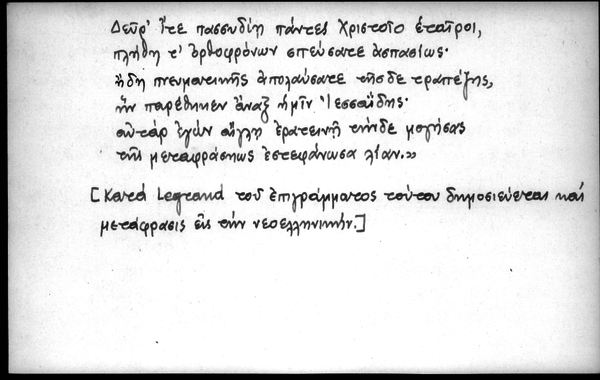 Δεῦρ' ἴτε πασσυδίῃ πάντες Χριστοῖο ἑταῖροι,
πλήθη τ' ὀρθοφρόνων σπεύσατε ἀσπασίως·
ἤδη πνευματικῆς ἀπολαύσατε τῆσδε τραπέζης,
ἣν παρέθηκεν ἄναξ ἡμῖν Ἰεσσαΐδης·
αὐτὰρ ἐγὼν αἴγλῃ ἐρατεινῇ τήνδε μογήσας
τῆς μεταφράσηως ἐστεφάνωσα λίαν.»
[Κατά Legrand τοῦ ἐπιγράμματος τούτου δημοσιεύεται καί
μετάφρασις εἰς τήν νεοελληνικήν.]